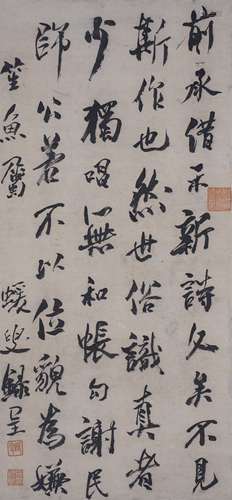 前承借示新詩久矣不見
斯作也然世俗識真者
少獨唱無和帳勾謝民
師公若不以位貌為嫌
笙魚屬 蝯叟録呈